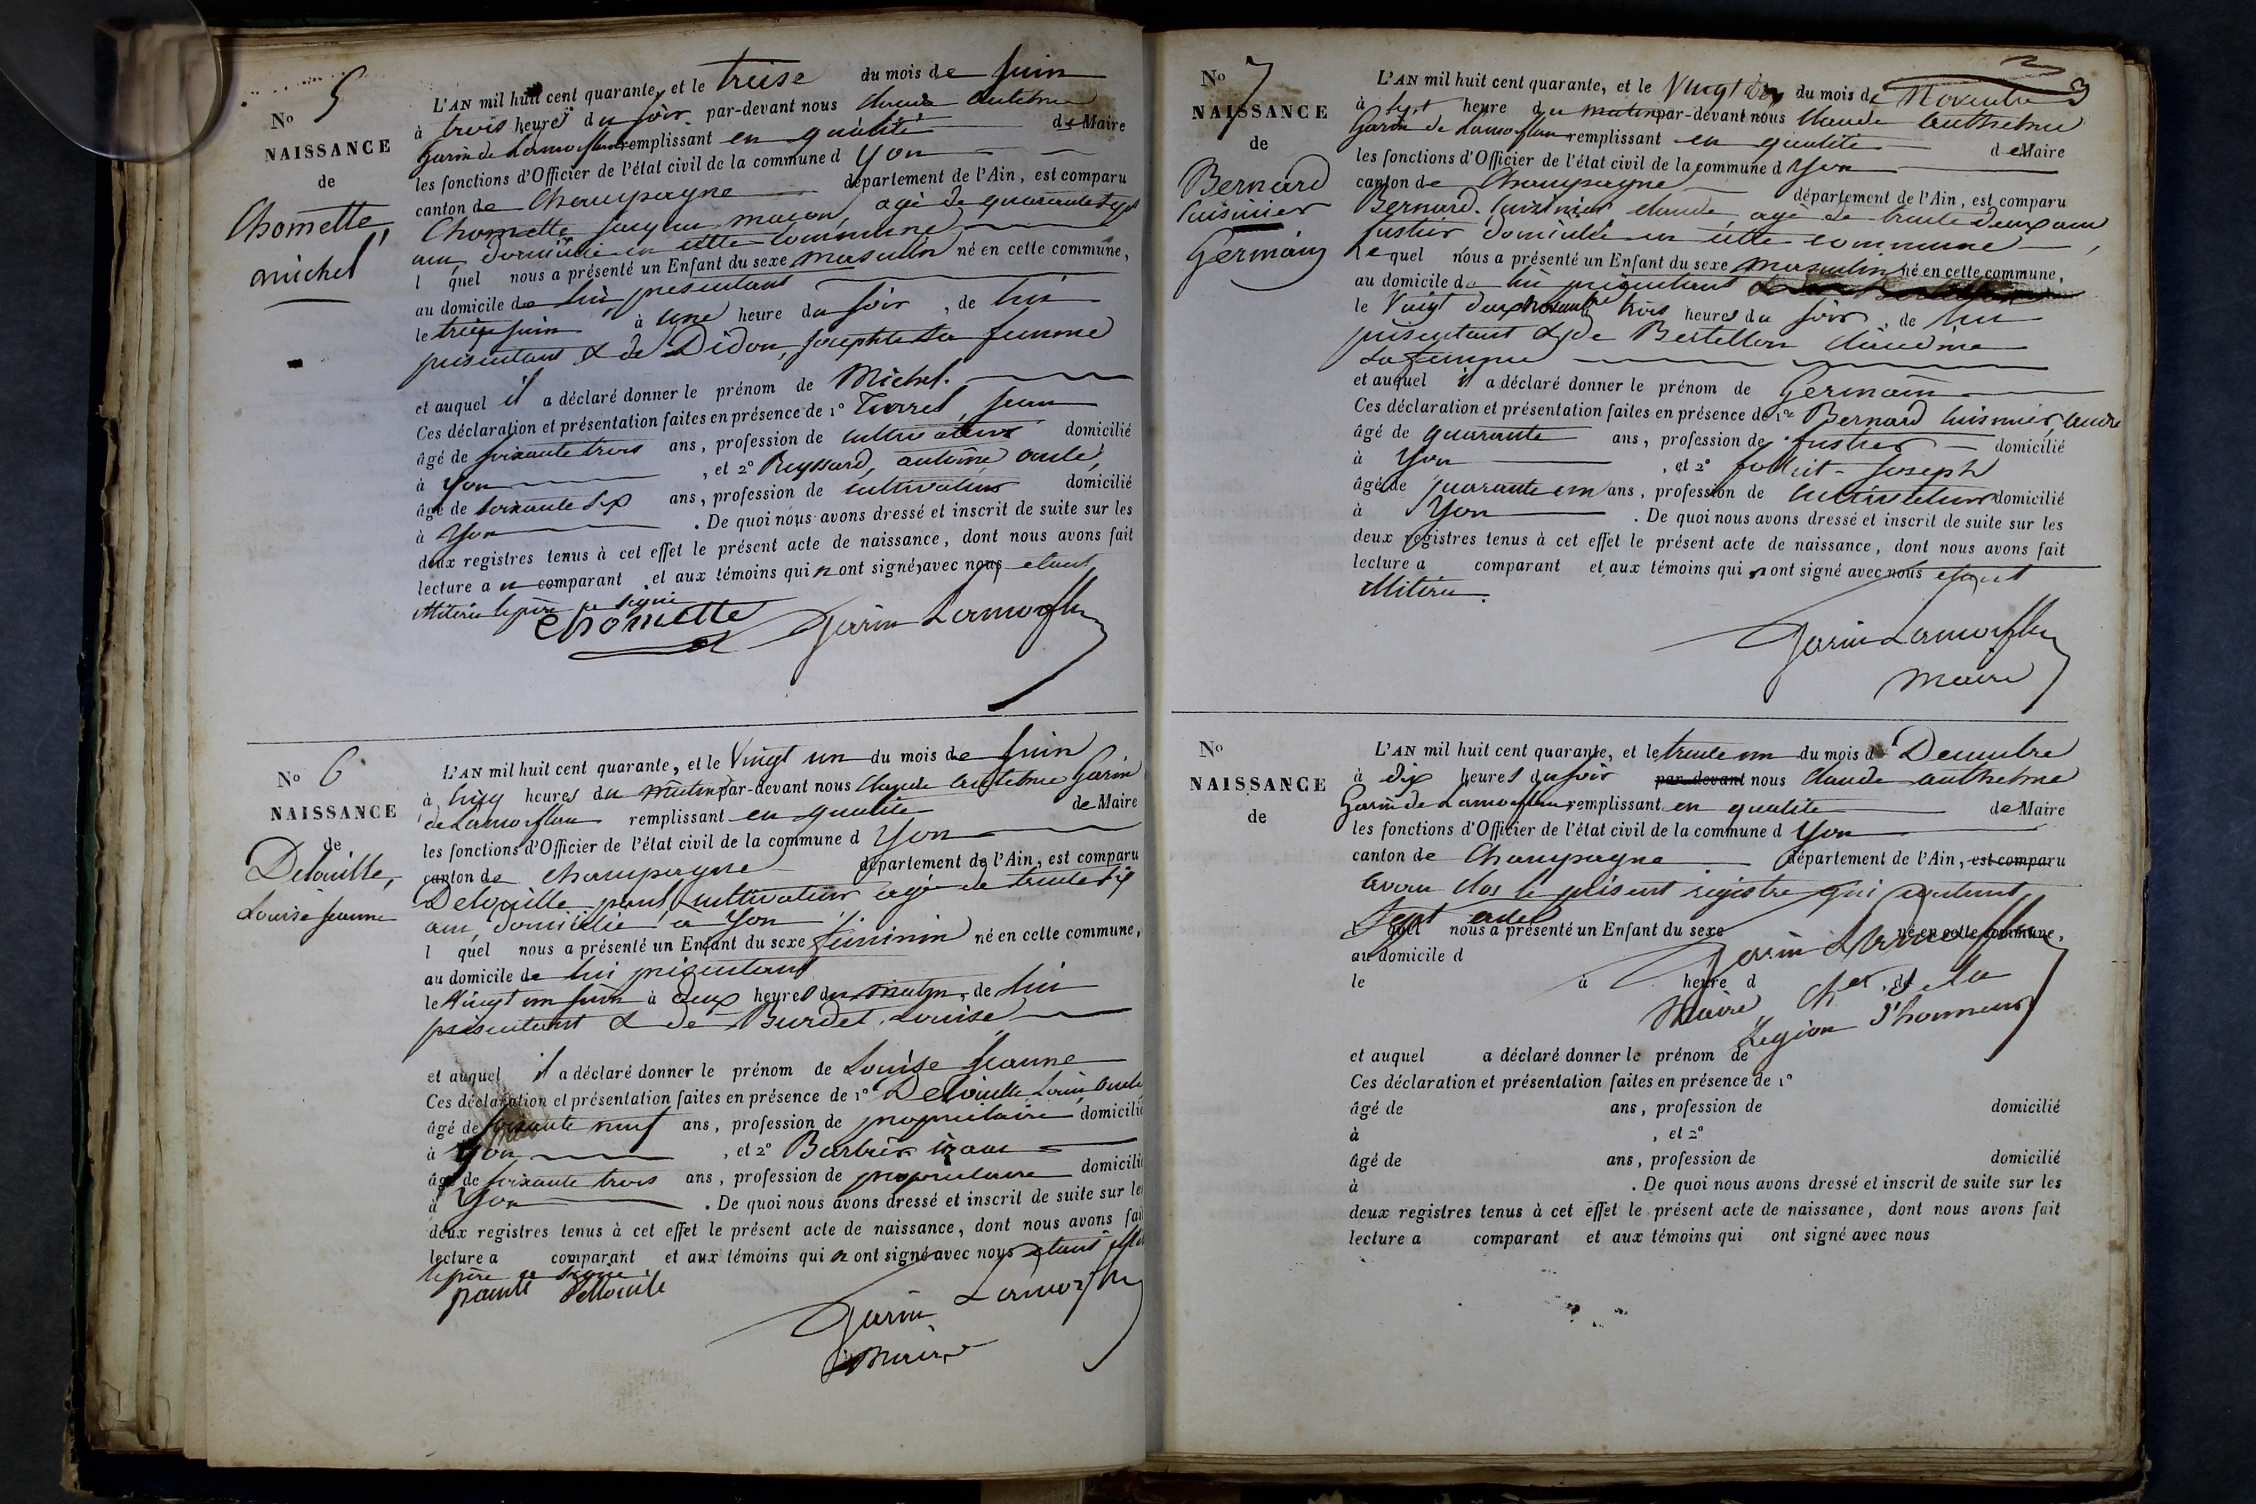 No 5
NAISSANCE
de
Chomette,
michel
L'AN mil huit cent quarante, et le treise du mois de Juin
à trois heures du soir par-devant nous Claude anthelme
Garin de Lamorflan remplissant en qualité de Maire
les fonctions d'Officier de l'état civil de la commune d Yon
canton de Champagne département de l'Ain, est comparu
Chomette maçon, agé de quarante sept
ans, domicilié en cette commune
l quel nous a présenté un Enfant du sexe masculin né en cette commune,
au domicile de lui présentant
le treize juin à une heure du soir, de lui
présentant & de Didon, Josephte sa femme
et auquel il a déclaré donner le prénom de Michel.
Ces déclaration et présentation faites en présence de 1° Turrel, Jean
âgé de soixante trois ans, profession de cultivateur domicilié
à Yon, et 2° Reyssard, antoine oncle,
âgé de soixante six ans, profession de cultivateur domicilié
à Yon. De quoi nous avons dressé et inscrit de suite sur les
deux registres tenus à cet effet le présent acte de naissance, dont nous avons fait
lecture a u comparant, et aux témoins qui n ont signé, avec nous etant
illitéré le père a signé
Chomette Garin Lamorflan
No 6
NAISSANCE
de
Delouille,
Louise Jeanne
L'AN mil huit cent quarante, et le Vingt un du mois de Juin
à cinq heures du matin par-devant nous Claude anthelme Garin
de Lamorflan remplissant en qualité de Maire
les fonctions d'Officier de l'état civil de la commune d Yon
canton de Champagne département de l'Ain, est comparu
Delouille paul cultivateur agé de trente six
ans, domicilié à Yon
l quel nous a présenté un Enfant du sexe féminin né en cette commune,
au domicile de lui présentant
le Vingt un Juin à deux heures du matin, de lui
présentant & de Burdet, Louise
et auquel il a déclaré donner le prénom de Louise Jeanne
Ces déclaration et présentation faites en présence de 1° Delouille Louis oncle
âgé de soixante neuf ans, profession de propriétaire domicilié
à Yon, et 2° Barbier
âgé de soixante trois ans, profession de propriétaire domicilié
à Yon. De quoi nous avons dressé et inscrit de suite sur les
deux registres tenus à cet effet le présent acte de naissance, dont nous avons fait
lecture a comparant et aux témoins qui n ont signé avec nous etant
le père a signé
Delouille Garin Lamorflan
maire
3
No 7
NAISSANCE
de
Bernard
Cuisinier
Germain
L'AN mil huit cent quarante, et le Vingt deux du mois de Novembre
à sept heure du matin par-devant nous Claude anthelme
Garin de Lamorflan remplissant en qualité de Maire
les fonctions d'Officier de l'état civil de la commune d Yon
canton de Champagne département de l'Ain, est comparu
Bernard. Cuisinier Claude, agé de trente deux ans
fustier domicilié en cette commune,
Le quel nous a présenté un Enfant du sexe masculin né en cette commune,
au domicile de lui présentant
le Vingt deux novembre trois heures du soir, de lui
présentant & de Bertellon Claudine
sa femme
et auquel il a déclaré donner le prénom de Germain
Ces déclaration et présentation faites en présence de 1° Bernard Cuisinier, andré
âgé de quarante ans, profession de fustier domicilié
à Yon, et 2° Joseph
âgé de quarante un ans, profession de Cultivateur domicilié
à Yon. De quoi nous avons dressé et inscrit de suite sur les
deux registres tenus à cet effet le présent acte de naissance, dont nous avons fait
lecture a comparant et aux témoins qui n ont signé avec nous etant
illitéré.
Garin Lamorflan
maire
No
NAISSANCE
de
L'AN mil huit cent quarante, et le trente un du mois de Decembre
à dix heures du soir par-devant nous Claude anthelme
Garin de Lamorflan remplissant en qualité de Maire
les fonctions d'Officier de l'état civil de la commune d Yon
canton de Champagne département de l'Ain, est comparu
avons clos le présent registre qui contient
Sept actes
l quel nous a présenté un Enfant du sexe né en cette commune,
Garin Lamorflan
au domicile d
le à heure d, de
Maire, Cher. de la
Legion d'honneur
et auquel a déclaré donner le prénom de
Ces déclaration et présentation faites en présence de 1°
âgé de ans, profession de domicilié
à, et 2°
âgé de ans, profession de domicilié
à. De quoi nous avons dressé et inscrit de suite sur les
deux registres tenus à cet effet le présent acte de naissance, dont nous avons fait
lecture a comparant et aux témoins qui ont signé avec nous